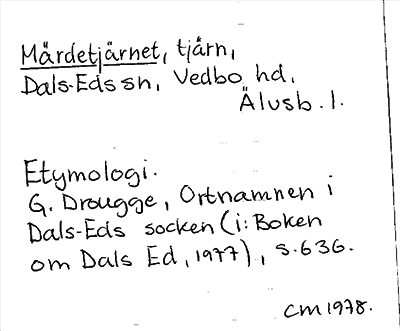 Mårdetjärnet, tjärn,
Dals-Eds sn, Vedbo hd,
Älvsb. l.
Etymologi.
G. Drougge, Ortnamnen i
Dals-Eds socken (i: Boken
om Dals Ed, 1977), s. 636.
CM 1978.